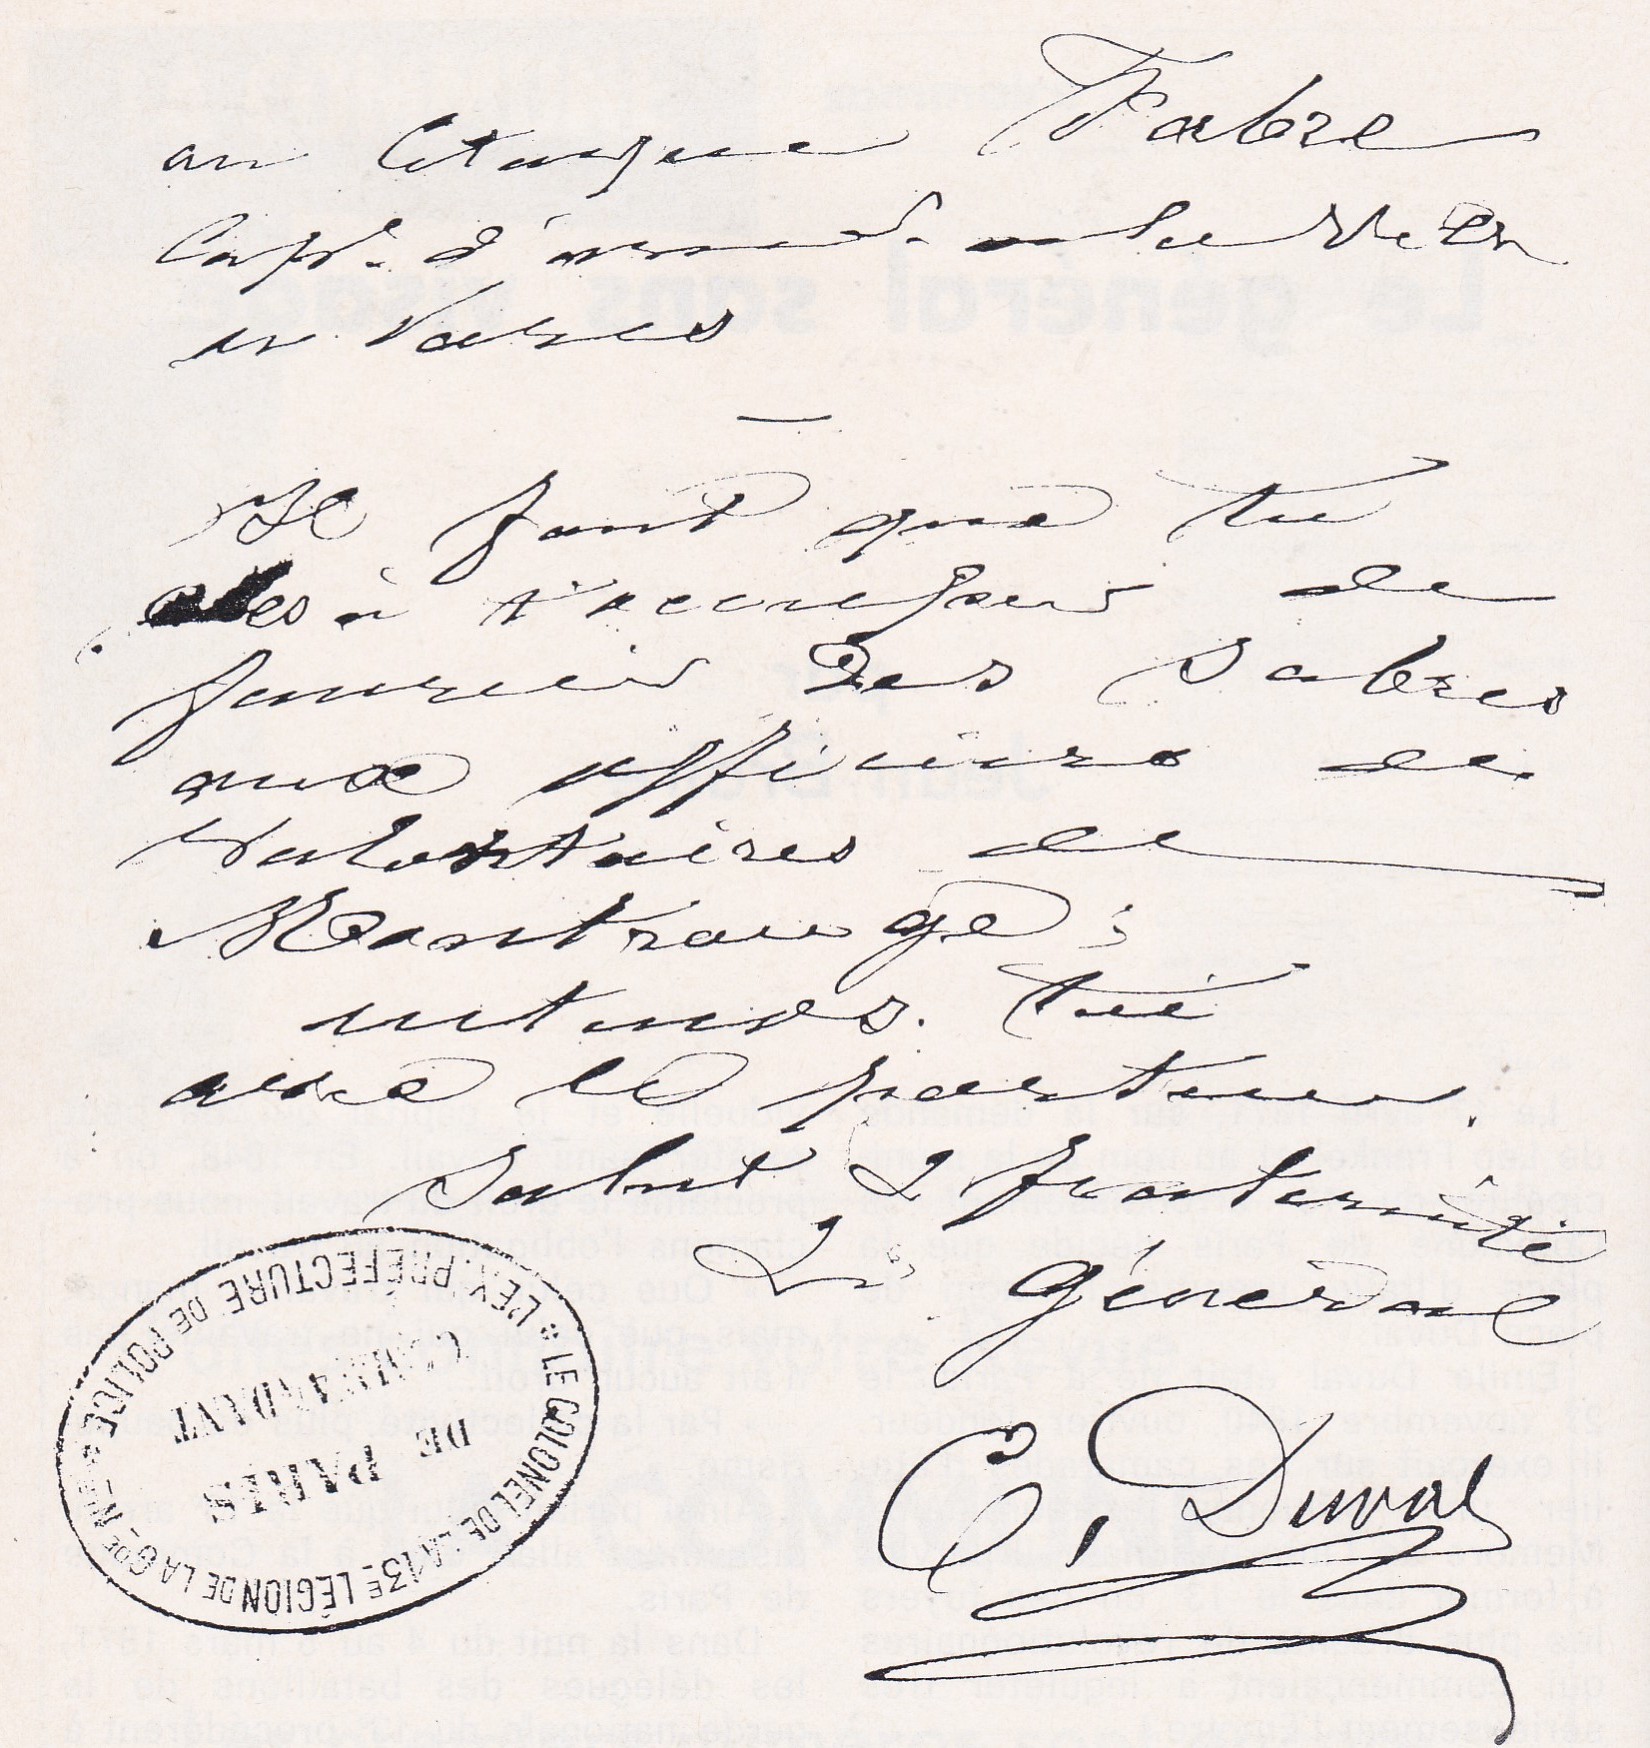 au Citoyen Fabre
Capt. d'arm.
Il faut que tu
à t'occuper de
fournir des sabres
aux officiers de
Volontaires de
Montrouge;
avec le porteur.
Salut & fraternité
Le Général
E. Duval
* LE COLONEL DE LA 13E LÉGION DE LA GDE NLE * L'EX. PRÉFECTURE DE POLICE
COMMANDANT
DE PARIS